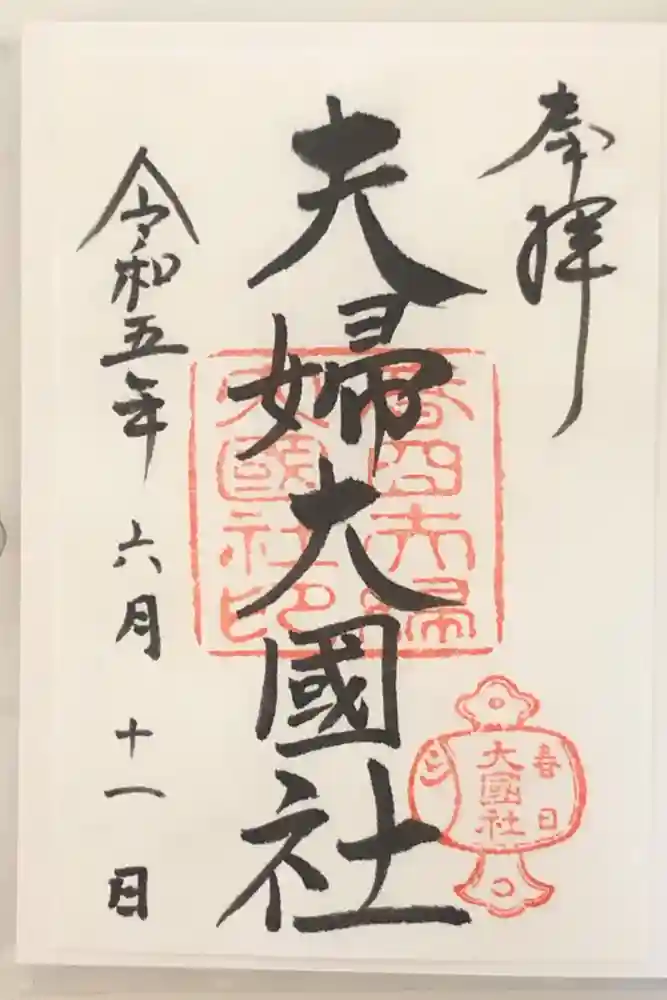 奉拝
夫婦大國社
春日夫婦
大國社印
春日
大國社
令和五年 六月 十一日